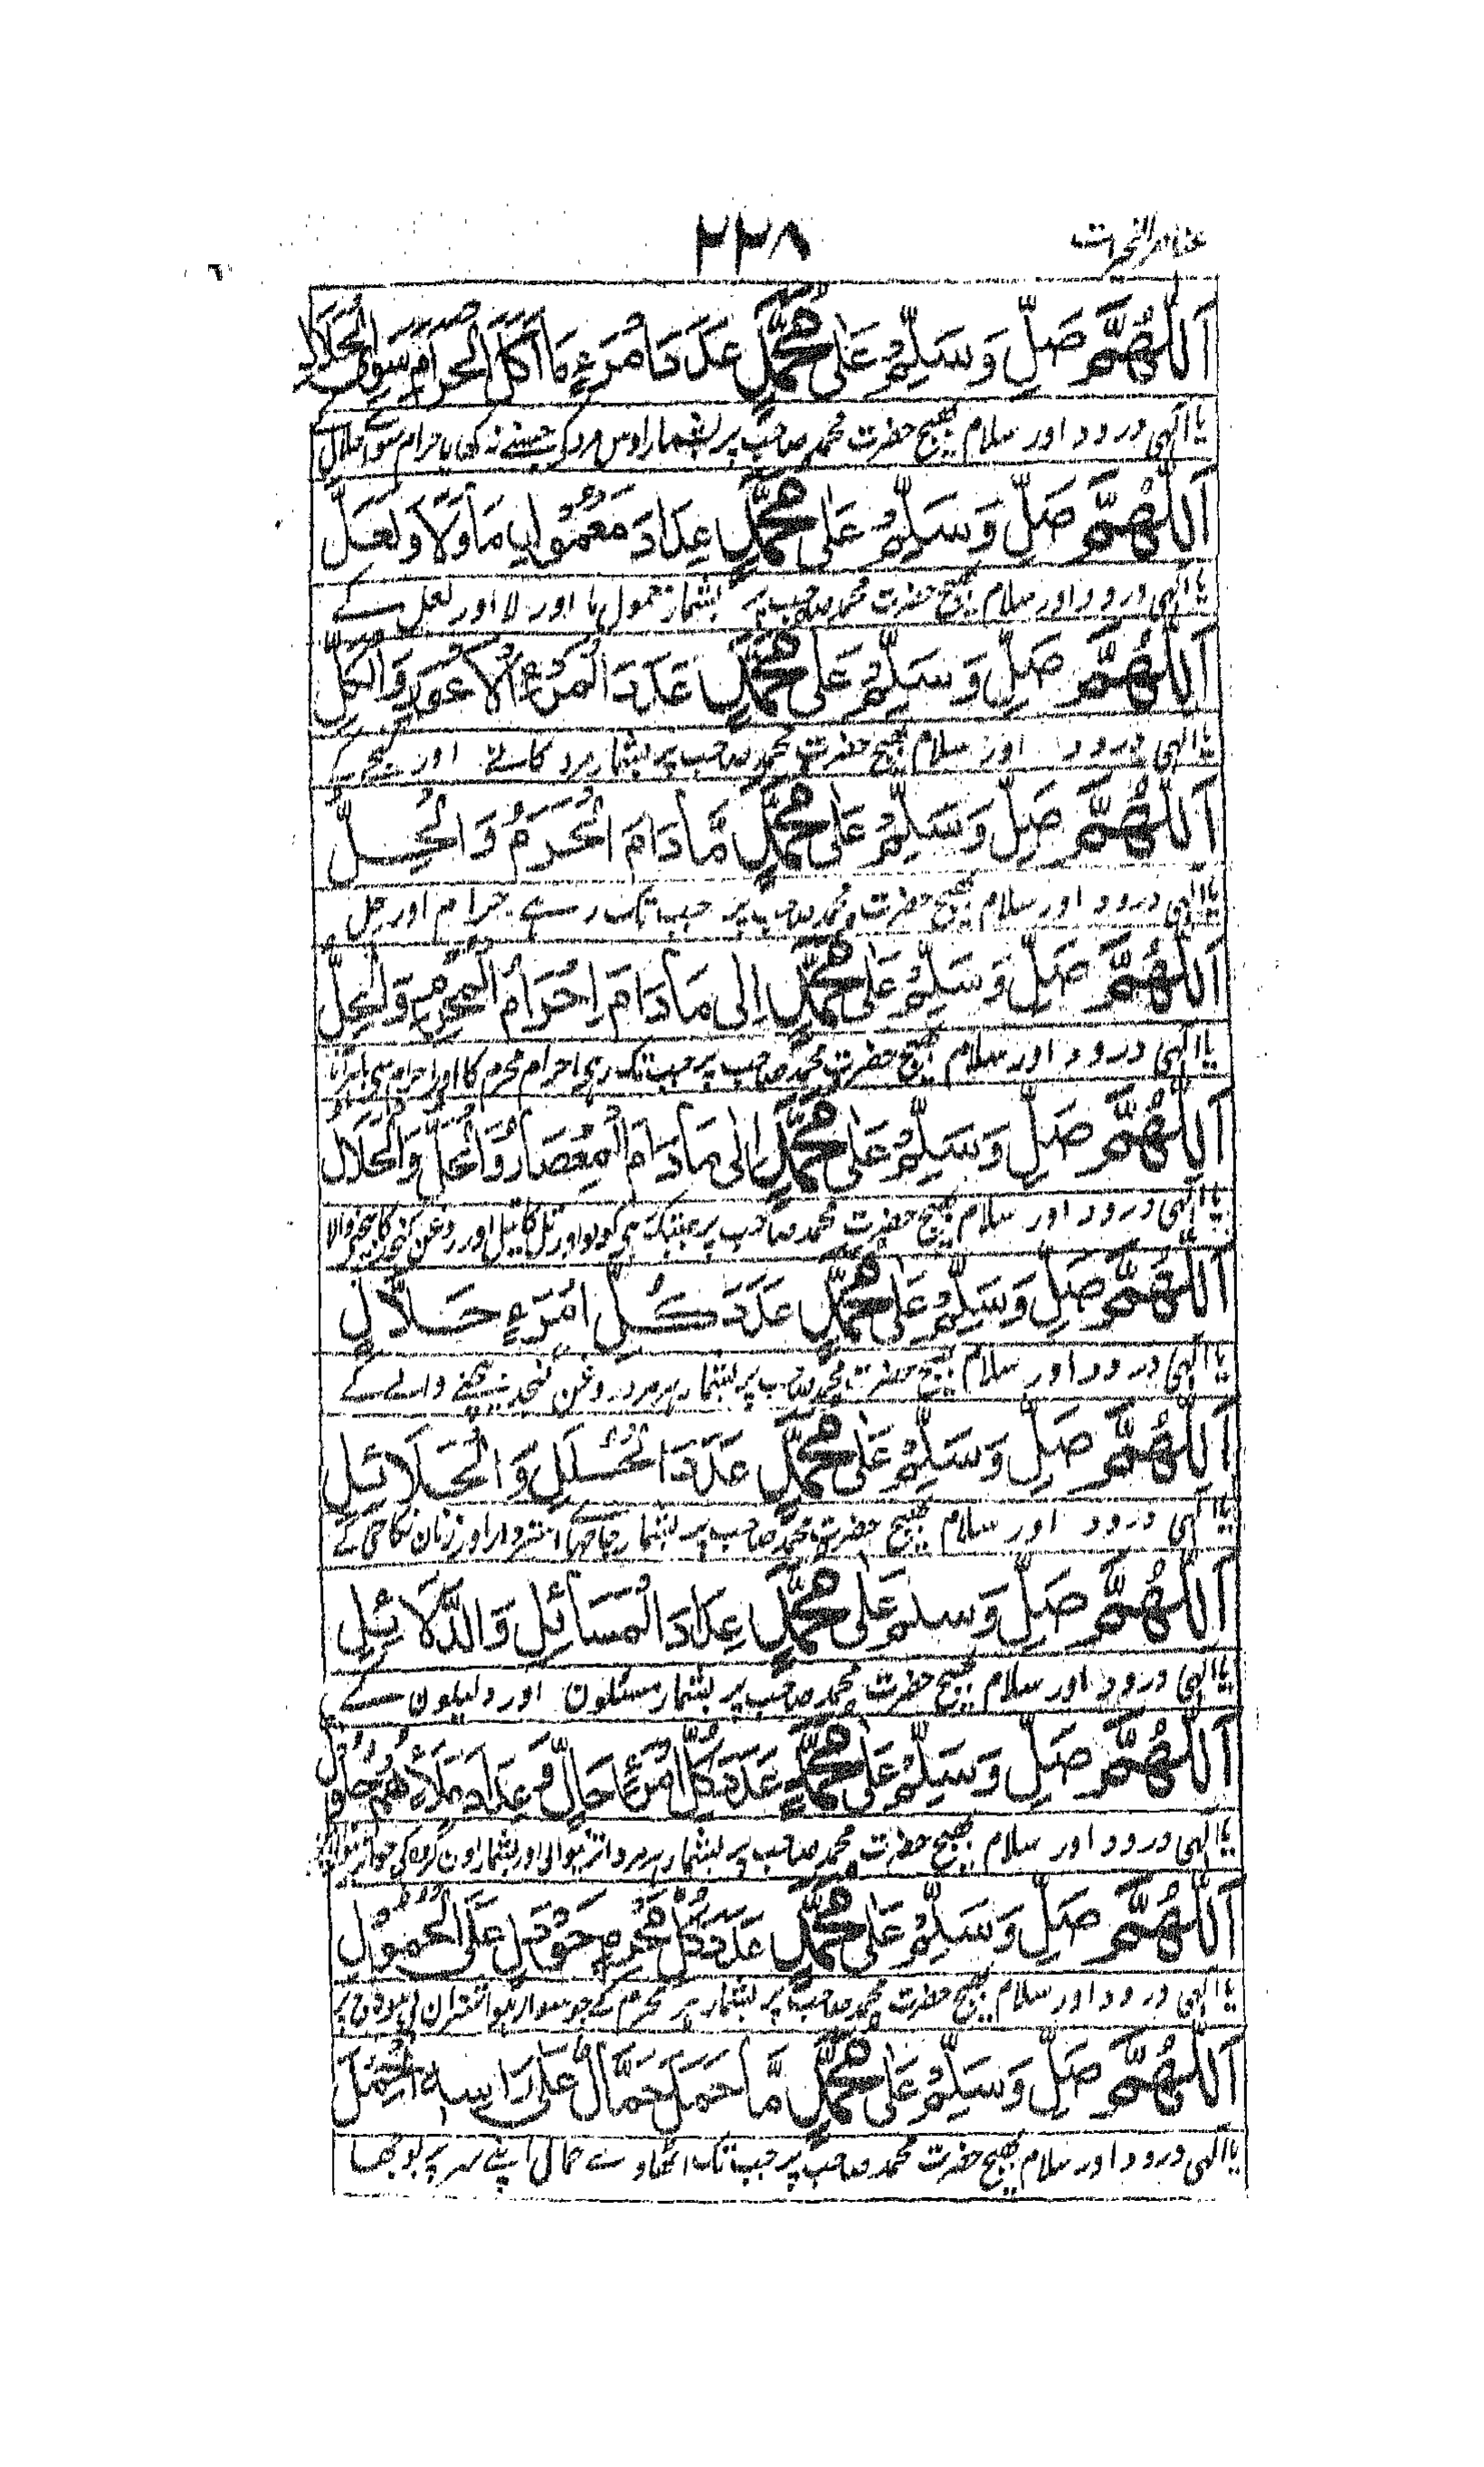 عناصر الخیرات
٢٢٨
اَللّٰهُمَّ صَلِّ وَسَلِّمْ عَلٰى مُحَمَّدٍ عَدَدَ امْرَءٍ مَا اَكَلَ الْحَرَامَ سِوَى الْحَلَالِ
یا الٰہی درود اور سلام بھیج حضرت محمد صاحب پر بشمار اوس مرد کے جسنے نہ کھایا حرام سوا حلال کے
اَللّٰهُمَّ صَلِّ وَسَلِّمْ عَلٰى مُحَمَّدٍ عَدَادَ مَعْمُوْلِ مَا وَلَا وَلَعَلَّ
یا الٰہی درود اور سلام بھیج حضرت محمد صاحب پر بشمار معمول ما اور لا اور لعل کے
اَللّٰهُمَّ صَلِّ وَسَلِّمْ عَلٰى مُحَمَّدٍ عَدَدَ الْمَرْءِ الْاَعْوَرِ وَالْكَلِّ
یا الٰہی درود اور سلام بھیج حضرت محمد صاحب پر بشمار مرد کانے اور کے
اَللّٰهُمَّ صَلِّ وَسَلِّمْ عَلٰى مُحَمَّدٍ مَّا دَامَ الْحَرَمُ وَالْحِلُّ
یا الٰہی درود اور سلام بھیج حضرت محمد صاحب پر جب تک رہے حرام اور حل
اَللّٰهُمَّ صَلِّ وَسَلِّمْ عَلٰى مُحَمَّدٍ اِلٰى مَا دَامَ اِحْرَامُ الْمُحْرِمِ وَالْحِلُّ
یا الٰہی درود اور سلام بھیج حضرت محمد صاحب پر جب تک رہے احرام محرم کا اور احرام سے باہر آنا
اَللّٰهُمَّ صَلِّ وَسَلِّمْ عَلٰى مُحَمَّدٍ اِلٰى مَا دَامَ الْمِعْصَارُ وَالْحَلُّ وَالْحَلَّالُ
یا الٰہی درود اور سلام بھیج حضرت محمد صاحب پر جبتک ہے کولہو اور تل کا تیل اور روغن کنجد کا بیچنے والا
اَللّٰهُمَّ صَلِّ وَسَلِّمْ عَلٰى مُحَمَّدٍ عَدَدَ كُلِّ امْرَءٍ حَلَّالٍ
یا الٰہی درود اور سلام بھیج حضرت محمد صاحب پر بشمار ہر مرد روغن کنجد بیچنے والے کے
اَللّٰهُمَّ صَلِّ وَسَلِّمْ عَلٰى مُحَمَّدٍ عَدَدَ الْحُلَلِ وَالْحَلَائِلِ
یا الٰہی درود اور سلام بھیج حضرت محمد صاحب پر بشمار جامہاے استردار اور زنان نکاحی کے
اَللّٰهُمَّ صَلِّ وَسلم عَلٰى مُحَمَّدٍ عِدَادَ الْمَسَائِلِ وَالدَّلَائِلِ
یا الٰہی درود اور سلام بھیج حضرت محمد صاحب پر بشمار مسئلون اور دلیلون کے
اَللّٰهُمَّ صَلِّ وَسَلِّمْ عَلٰى مُحَمَّدٍ عَدَدَ كُلِّ امْرَءٍ حَالٍّ وَّعِدَادَ مَلَاءٍ هُمْ حُلُوْلٌ
یا الٰہی درود اور سلام بھیج حضرت محمد صاحب پر بشمار ہر مرد اترنیوالے اور بشمار اون گروہ کے جو
اَللّٰهُمَّ صَلِّ وَسَلِّمْ عَلٰى مُحَمَّدٍ عَدَدَ كُلِّ مُحْرِمٍ حَوْقَلٍ عَلَى الْحُمُوْلِ
یا الٰہی درود اور سلام بھیج حضرت محمد صاحب پر بشمار ہر محرم کے جو سوار ہوا پر
اَللّٰهُمَّ صَلِّ وَسَلِّمْ عَلٰى مُحَمَّدٍ مَّا حَمَلَ حَمَّالٌ عَلٰى رَاْسِهِ الْحِمْلَ
یا الٰہی درود اور سلام بھیج حضرت محمد صاحب پر جب تک اٹھاوے حمال اپنے سر پر بوجھا